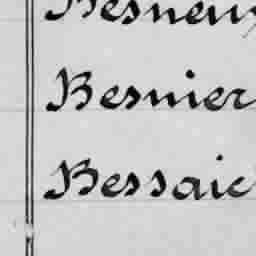 Besneux
Besnier
Bessaic